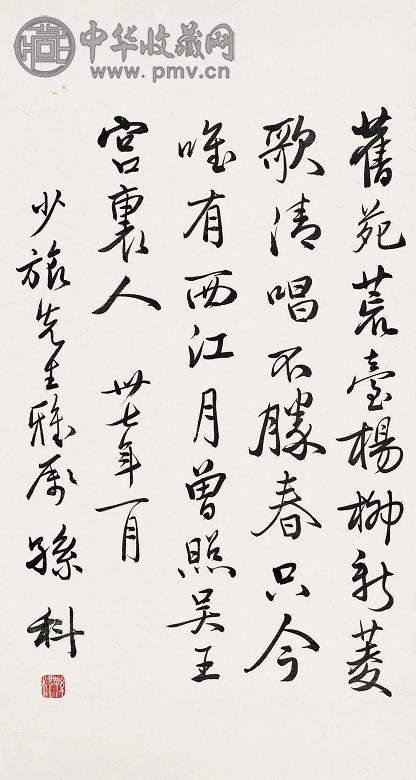 中华收藏网
www.pmv.cn
舊苑荒臺楊柳新菱
歌清唱不勝春只今
唯有西江月曾照吴王
宫裏人 卅七年一月
少旅先生雅属 孫科